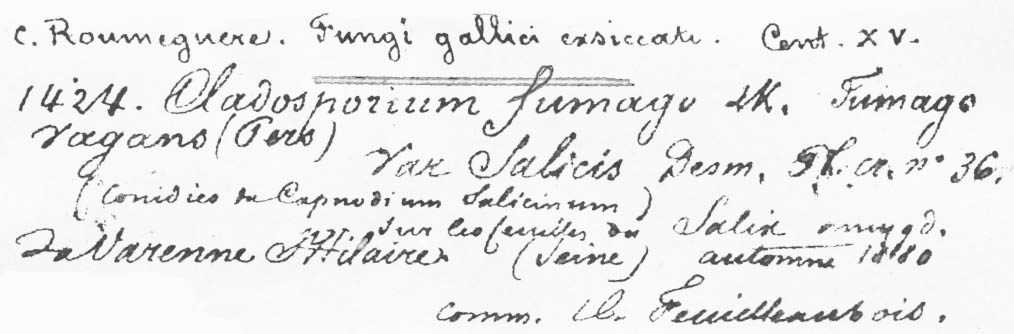 C. Roumeguere. Fungi gallici exsiccati. Cent. XV.
1424. Cladosporium fumago LK. Fumago
vagans (Pers)
Var Salicis Desm. Pl. cr. n° 36.
(conidies du Capnodium Salicinum)
Sur les feuilles du Salix amygd.
La Varenne St Hilaire (Seine) automne 1880
comm. Feuilleaubois.